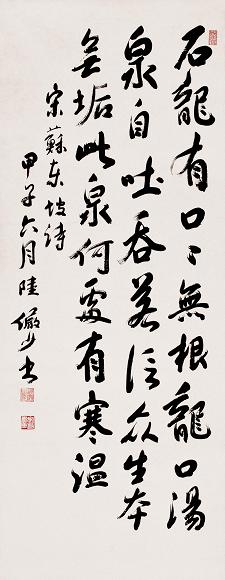 石龍有口〻無根龍口湯
泉自吐吞若信众生本
無垢此泉何處有寒温
宋蘇东坡诗
甲子六月陸儼少书